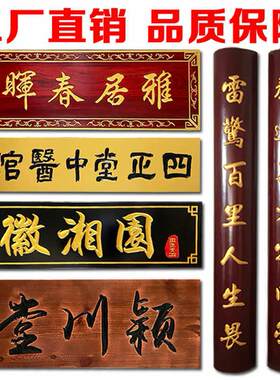 工厂直销 品质保障
雅居春暉
四正堂中醫館
園湘徽
潁川堂
雷驚百里人生畏